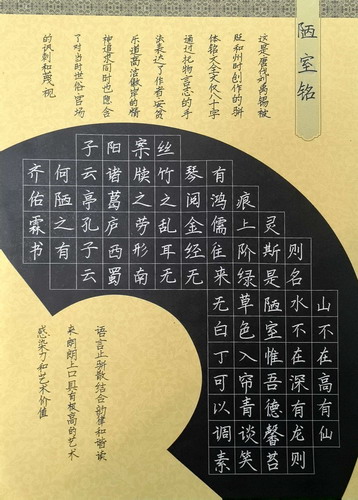 陋室铭
这是唐代刘禹锡被
贬和州时创作的骈
体铭文全文仅八十字
通过托物言志的手
法表达了作者安贫
乐道高洁傲岸的情
神追求同时也隐含
了对当时世俗官场
的讽刺和蔑视
山不在高有仙
则名水不在深有龙则
灵斯是陋室惟吾德馨苔
痕上阶绿草色入帘青谈笑
有鸿儒往来无白丁可以调素
琴阅金经无
丝竹之乱耳无
案牍之劳形南
阳诸葛庐西蜀
子云亭孔子云
何陋之有
齐佑霖书
语言上骈散结合韵律和谐读
来朗朗上口具有极高的艺术
感染力和艺术价值